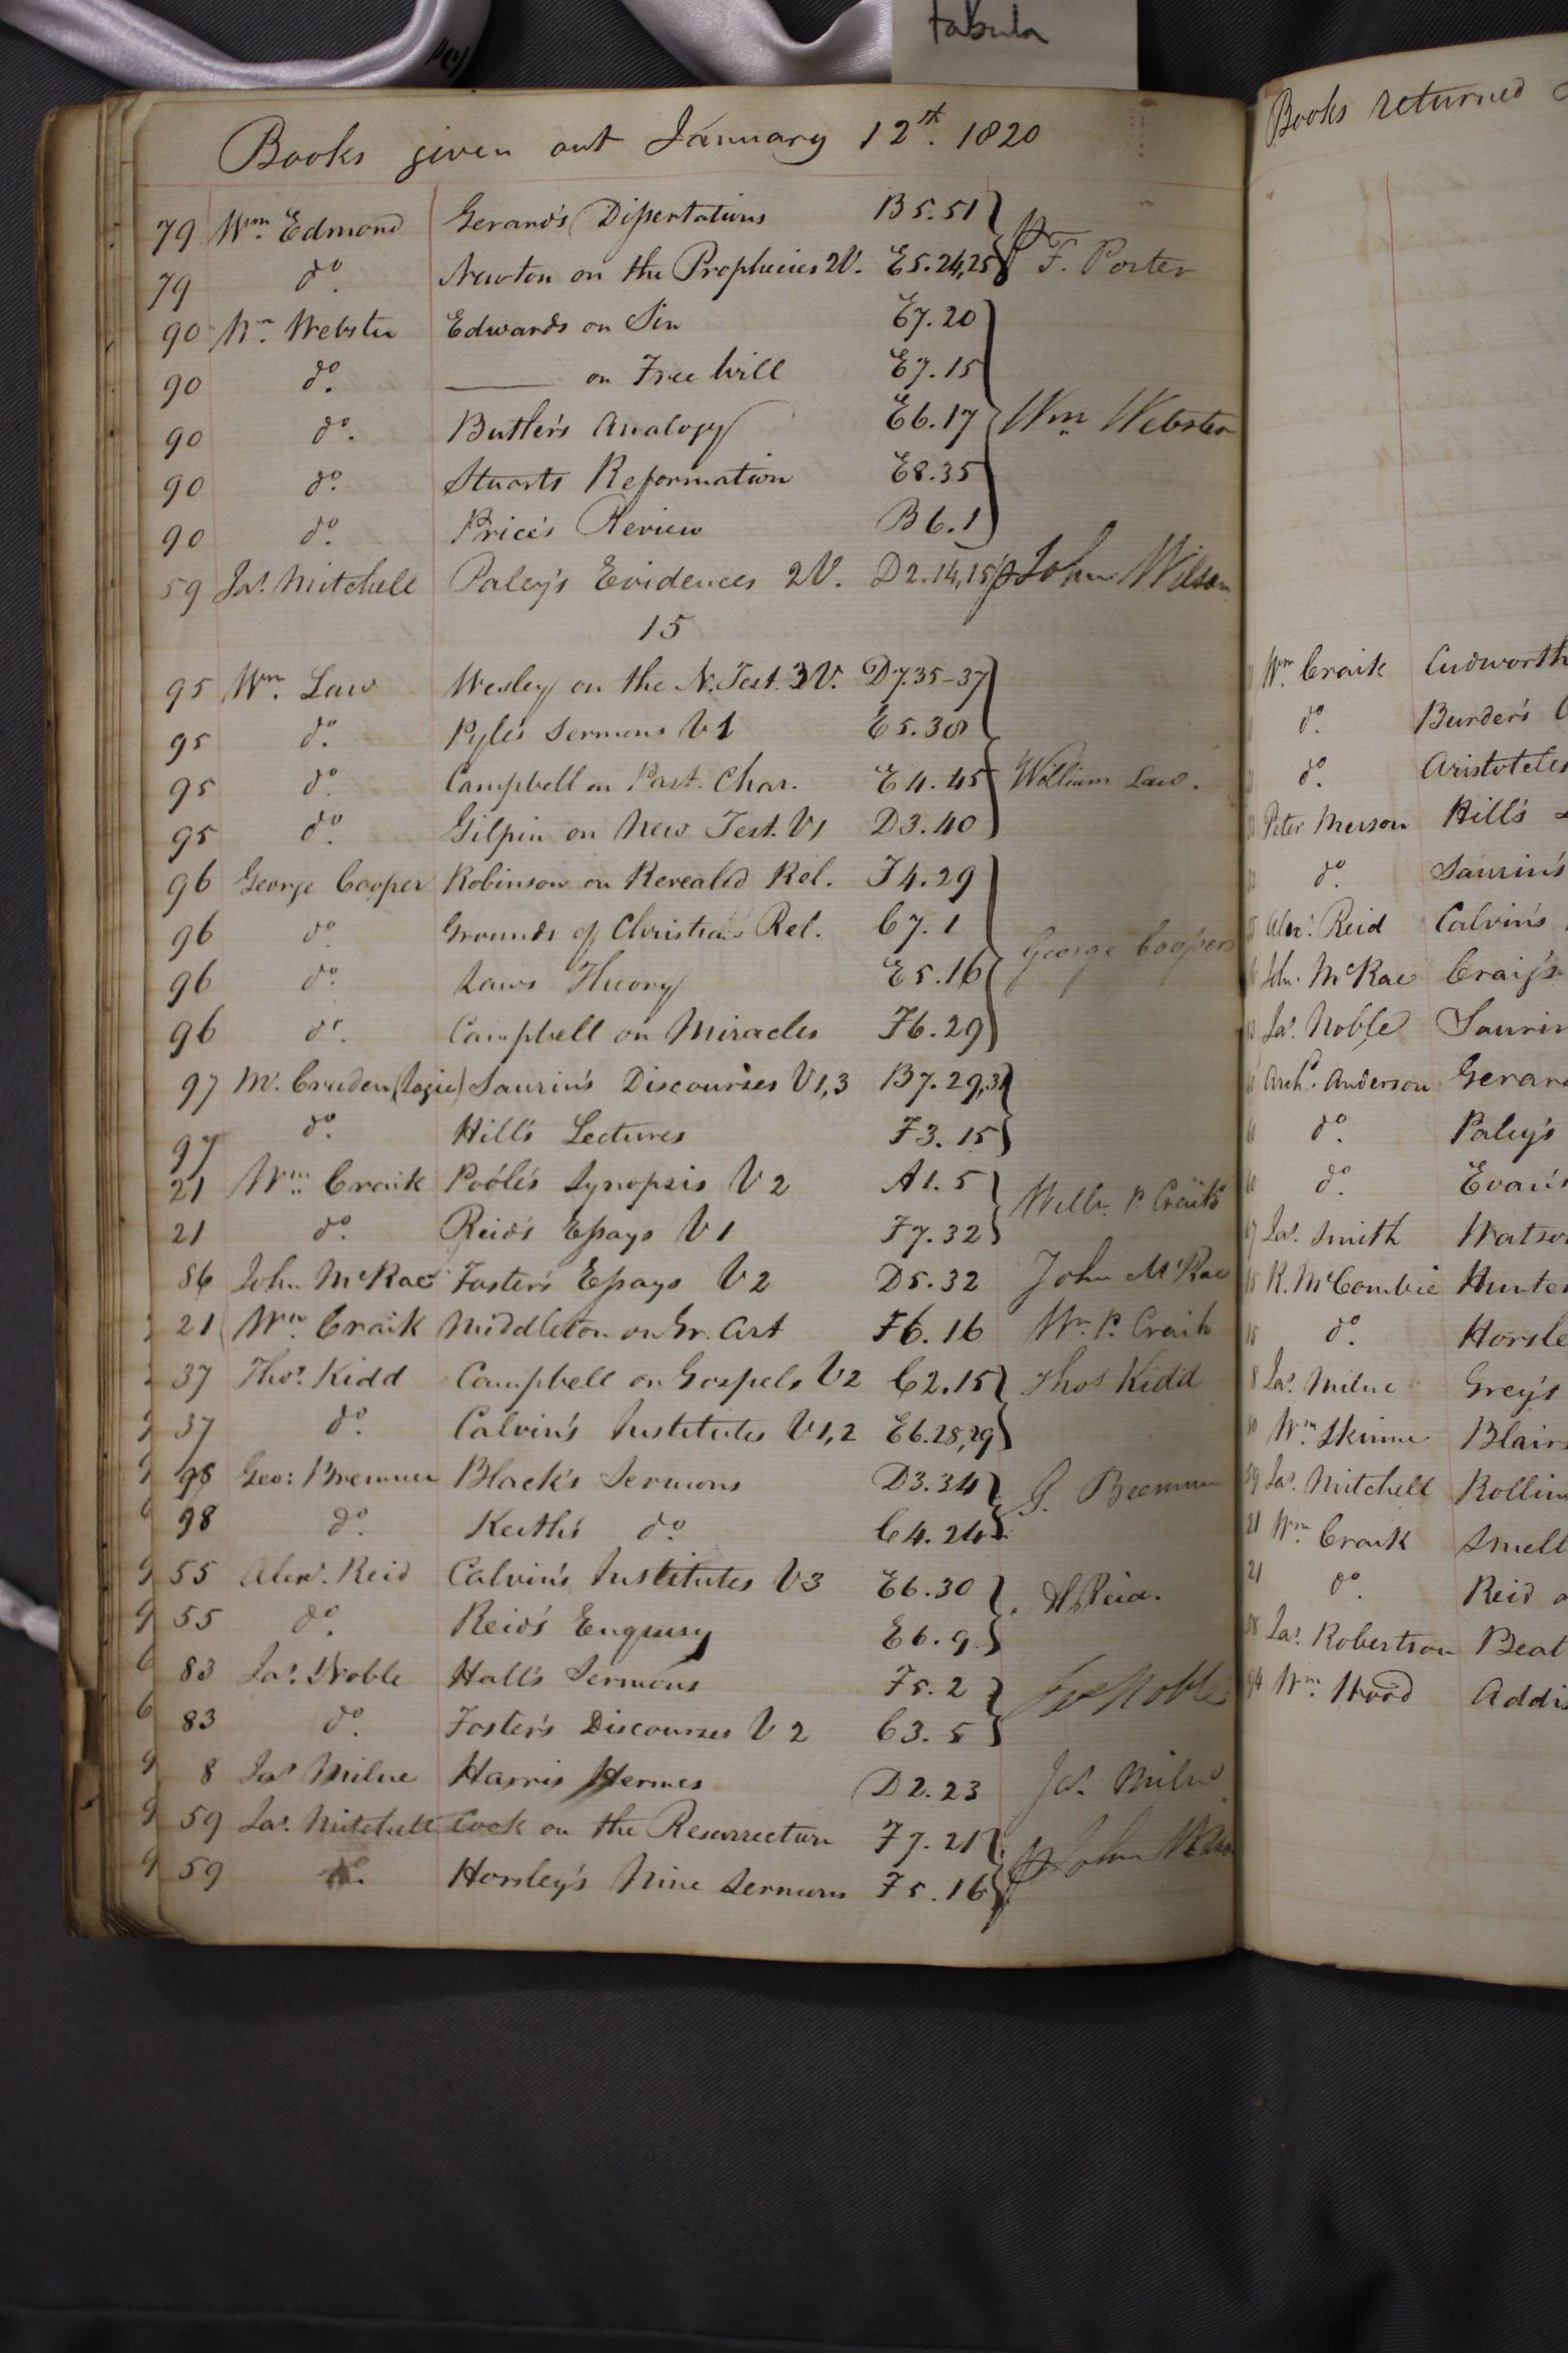 tabula
Books given out January 12st. 1820
79 Wm. Edmond Gerard's Dissertations B5.51
79 do. Newton on the Prophecies 2V. E5.24,25 p F. Porter
90 Wm. Webster Edwards on Sin E7.20
90 do. ——— on Free Will E7.15
90 do. Butler's Analogy E6.17 Wm Webster
90 do. Stuarts Reformation E8.35
90 do. Price's Review B6.1
59 Jas. Mitchell Paley's Evidences 2V. D2.14,15 p John Wilson
15
95 Wm. Law Wesley on the N. Test. 3V. D7.35-37
95 do. Pyle's Sermons V1 E5.38
95 do. Campbell on Past. Char. E4.45 William Law.
95 do. Gilpin on New Test. V1 D3.40
96 George Cooper Robinson on Revealed Rel. F4.29
96 do. Grounds of Christian Rel. C7.1 George Cooper
96 do. Laws Theory E5.16
96 do. Campbell on Miracles F6.29
97 Mr. Cruden (Logie) Saurin's Discourses V1,3 B7.29,31
97 do. Hill's Lectures F3.15
21 Wm. Craik Poole's Synopsis V2 A1.5 Willm. P. Craik
21 do. Reid's Essays V1 F7.32
86 John McRae Foster's Essays V2 D5.32 John McRae
21 Wm. Craik Middleton on Gr. Art F6.16 Wm. P. Craik
37 Thos. Kidd Campbell on Gospels V2 C2.15 Thos Kidd
37 do. Calvin's Institutes V1,2 E6.28,29
98 Geo: Bremner Black's Sermons D3.34 G. Bremner
98 do. Keith's do. C4.24
55 Alexr. Reid Calvin's Institutes V3 E6.30 A. Reid.
55 do. Reid's Enquiry E6.9
83 Jas. Noble Hall's Sermons F5.2 Jas Noble
83 do. Foster's Discourses V2 C3.5
8 Jas. Milne Harris Hermes D2.23 Jas. Milne
59 Jas. Mitchell Cook on the Resurrection F7.21 p John
59 do. Horsley's Nine Sermons F5.16
Books returned
Wm. Craik Cudworth
do. Burder's
do. Aristoteles
Peter Merson Hill's
do. Saurin's
Alexr. Reid Calvin's
John McRae Craig's
Jas. Noble Saurin
Archd. Anderson Gerard
do. Paley's
do. Evan's
Jas. Smith Watson
R. McCombie Hunter
do. Horsle
Jas. Milne Grey's
Wm. Skinner Blairs
59 Jas. Mitchell Rollin
21 Wm. Craik Smell
21 do. Reid
Jas. Robertson Beat
Wm. Wood Addis